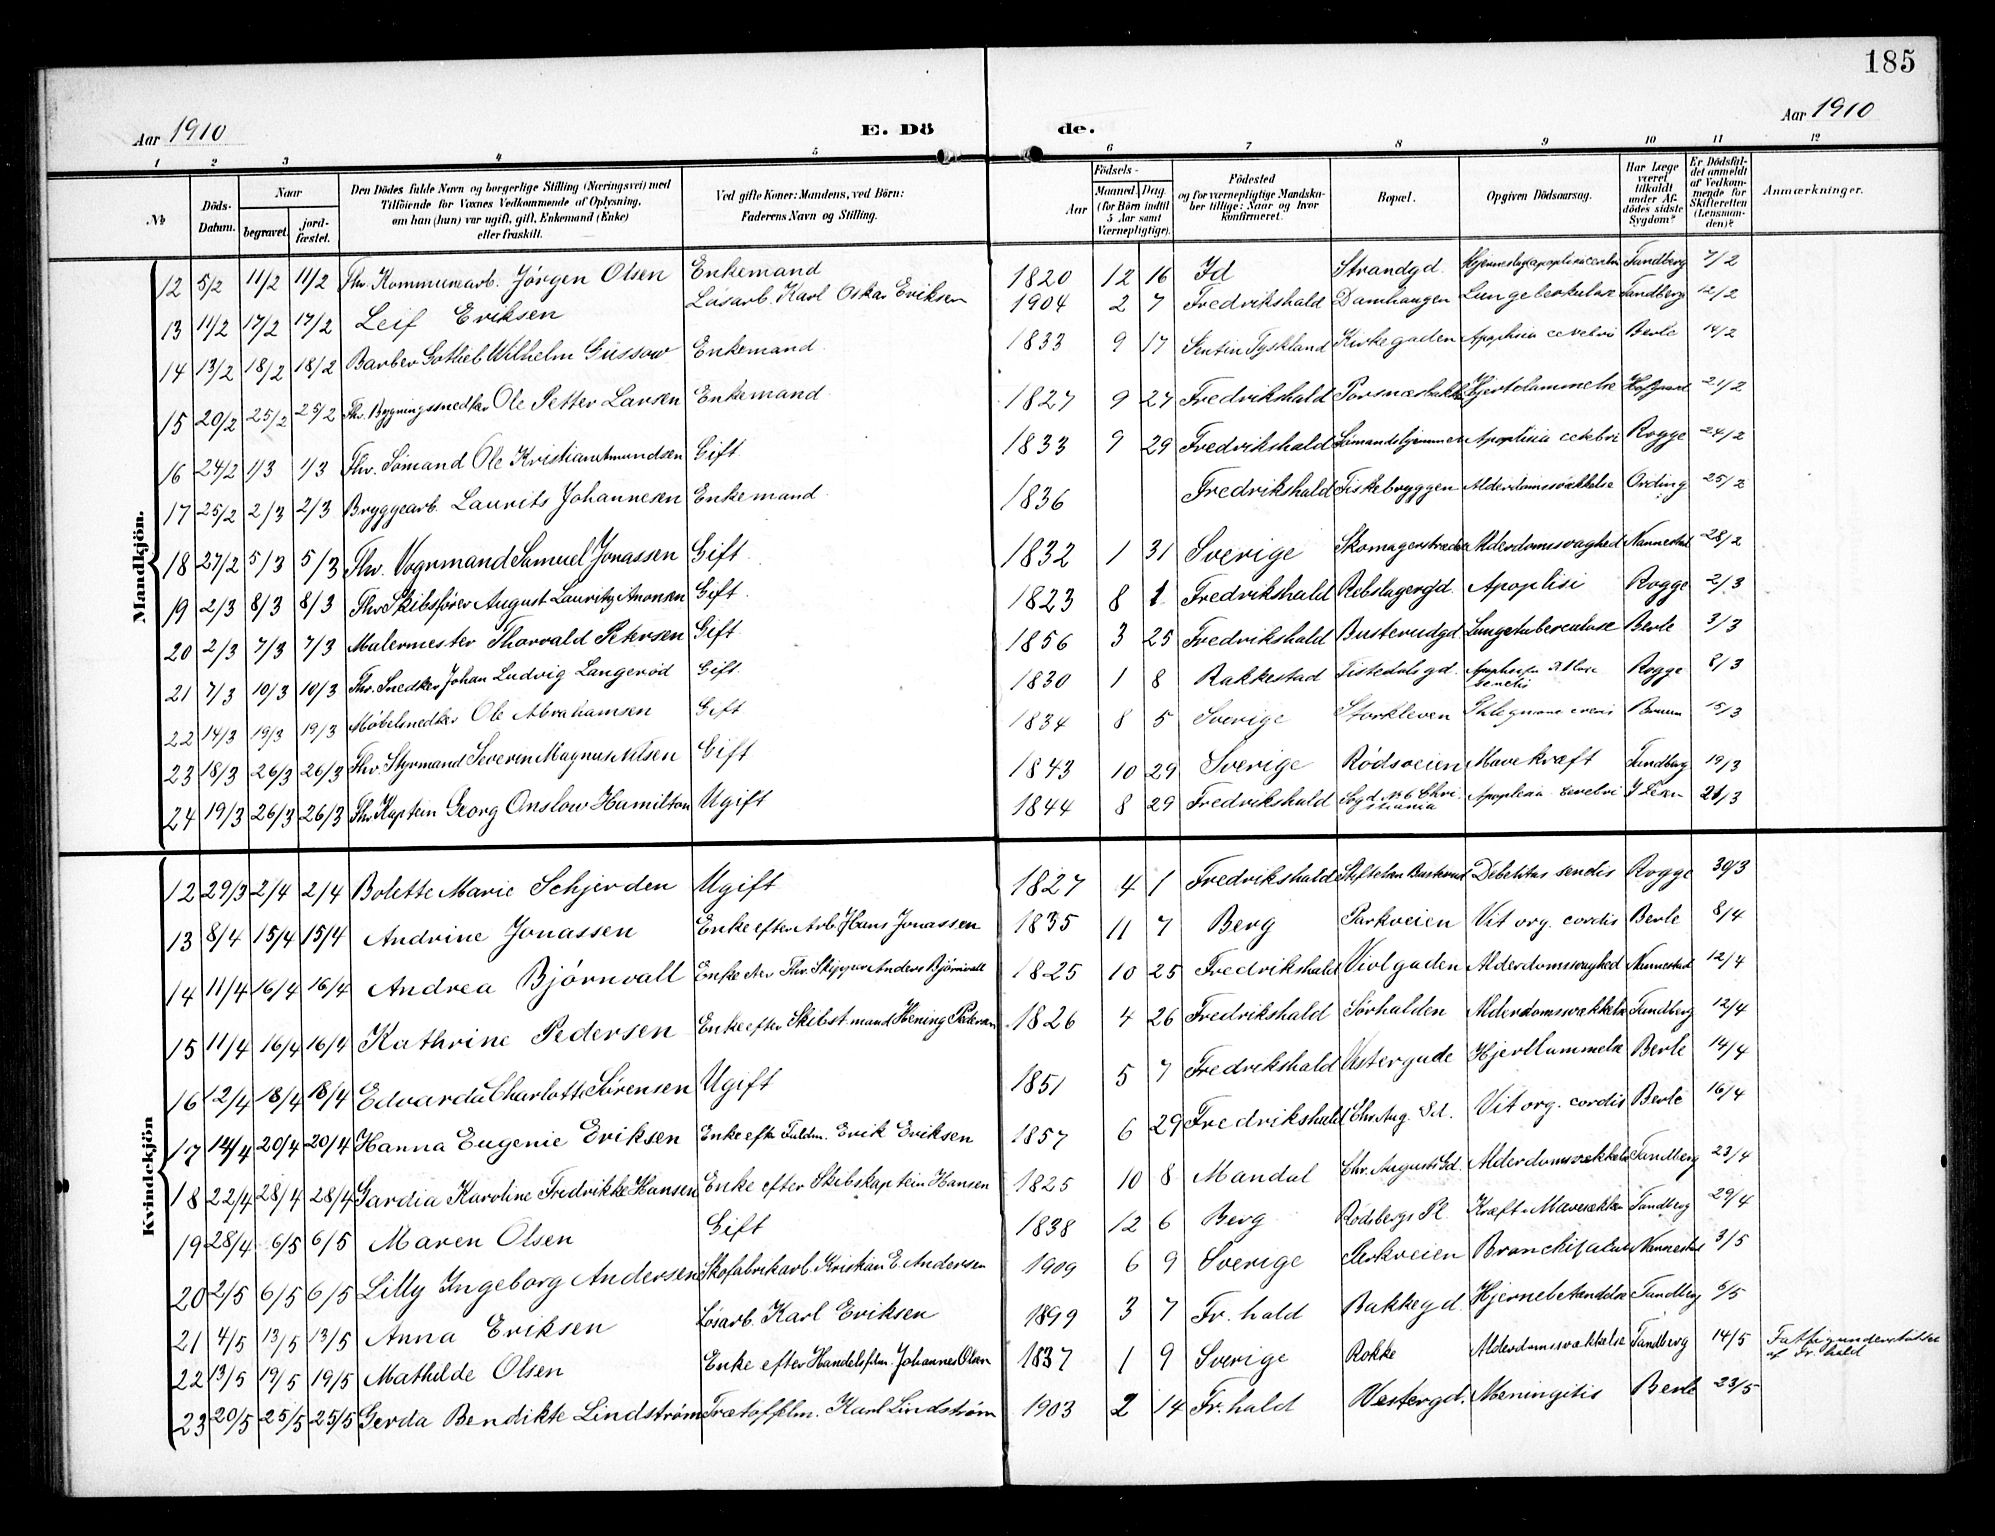 185
Aar 1910
E. Dö
de.
Aar 1910
1 2 3 4 5 6 7 8 9 10 11 12
No
Döds-Datum.
Naar
begravet.
jord-fæstet.
Den Dödes fulde Navn og borgerlige Stilling (Næringsvei) med Tilföiende for Voxnes Vedkommende af Oplysning, om han (hun) var ugift, gift, Enkemand (Enke) eller fraskilt.
Ved gifte Koner: Mandens, ved Börn: Faderens Navn og Stilling.
Födsels-
Aar
Maaned. Dag.
(for Börn indtil 5 Aar samt Værnepligtige).
Födested og for værnepligtige Mandska-ber tillige: Naar og hvor konfirmeret.
Bopæl.
Opgiven Dödsaarsag.
Har Læge været tilkaldt under Af-dödes sidste Sygdom?
Er Dödsfal-det anmeldt af Vedkom-mende for Skifteretten (Lensman-den)?
Anmærkninger.
Mandkjön.
12 5/2 11/2 11/2 Fhv. Kommunearb. Jørgen Olsen Enkemand 1820 12 16 Id Strandgd. Tandberg 7/2
13 11/2 17/2 17/2 Leif Eriksen Løsarb. Karl Oskar Eriksen 1904 2 7 Fredrikshald Damhaugen Lungeberkulose Tandberg 12/2
14 13/2 18/2 18/2 Barber Gotlieb Wilhelm Güssow Enkemand. 1833 9 17 Tyskland Kirkegaden Apoplexia cerebri Berle 14/2
15 20/2 25/2 25/2 Fhv. Bygningssnedker Ole Petter Larsen Enkemand 1827 9 27 Fredrikshald Porsnæsbakke Hjertelammelse Hofgaard 21/2
16 24/2 1/3 1/3 Fhv. Sømand Ole Kristian Amundsen Gift 1833 9 29 Fredrikshald Sømandshjemmet Apoplexia cerebri Rogge 24/2
17 25/2 2/3 2/3 Bryggearb. Laurits Johannesen Enkemand. 1836 Fredrikshald Fiskebryggen Alderdomssvækkelse Ording 25/2
18 27/2 5/3 5/3 Fhv. Vognmand Samuel Jonassen Gift. 1832 1 31 Sverige Skomagerstrædet Alderdomssvaghed Nannestad 28/2
19 2/3 8/3 8/3 Fhv Skibsfører August Lauritz Anonsen Gift. 1823 8 1 Fredrikshald Rebslagergd. Apoplexi Rogge 2/3
20 2/3 7/3 7/3 Malermester Thorvald Petersen Gift 1856 3 25 Fredrikshald Busterudgd Lungetuberculose Berle 3/3
21 7/3 10/3 10/3 Fhv. Snedker Johan Ludvig Langerød Gift. 1830 1 8 Rakkestad Tistedalsgd. Rogge 8/3
22 14/3 19/3 19/3 Møbelsnedker Ole Abrahamsen Gift 1834 8 5 Sverige Storkleven Phlegmone cruris 15/3
23 18/3 26/3 26/3 Fhv. Styrmand Severin Magnus Nilsen Gift 1843 10 29 Sverige Rødsveien Mavekræft Tandberg 19/3
24 19/3 26/3 26/3 Fhv Kaptein Georg Onslow Hamilton Ugift 1844 8 29 Fredrikshald Sogd. No 6 Christiania Apoplexia cerebri 21/3
Kvindekjön
12 29/3 2/4 2/4 Bolette Marie Schjerden Ugift 1827 4 1 Fredrikshald Stiftelsen Busterud Debilitas senilis Rogge 30/3
13 8/4 15/4 15/4 Andrine Jonassen Enke efter Arb. Hans Jonassen 1835 11 7 Berg Parkveien Vit org. cordis Berle 8/4
14 11/4 16/4 16/4 Andrea Bjørnvall Enke efter Fhv. Skipper Anders Bjørnvall 1825 10 25 Fredrikshald Violgaden Alderdomssvaghed Nannestad 12/4
15 11/4 16/4 16/4 Kathrine Pedersen Enke efter Skibstømmand Hening Pedersen 1826 4 26 Fredrikshald Sørhalden Alderdomssvækkelse Tandberg 12/4
16 12/4 18/4 18/4 Edvarda Charlotte Sørensen Ugift 1851 5 7 Fredrikshald Vestergade Hjertlammelse Berle 14/4
17 14/4 20/4 20/4 Hanna Eugenie Eriksen Enke efter Fuldm. Erik Eriksen 1857 6 29 Fredrikshald Chr. Aug. Gd. Vit org. cordis Berle 16/4
18 22/4 28/4 28/4 Gardia Karoline Fredrikke Hansen Enke efter Skibskaptein Hansen 1825 10 8 Mandal Chr. Augusts Gd. Alderdomssvækkelse Tandberg 23/4
19 28/4 6/5 6/5 Maren Olsen Gift 1838 12 6 Berg Rødsbergs Pl. Kræft i Mavesækken Tandberg 29/4
20 2/5 6/5 6/5 Lilly Ingeborg Andersen Skofabrikarb. Kristian E. Andersen 1909 6 9 Sverige Parkveien Nannestad 3/5
21 4/5 13/5 13/5 Anna Eriksen Løsarb. Karl Eriksen 1899 3 7 Fr. hald Bakkegd. Hjernebetændelse Tandberg 6/5
22 13/5 19/5 19/5 Mathilde Olsen Enke efter Handelsflm. Johannes Olsen 1837 1 9 Sverige Rokke Alderdomssvækkelse Tandberg 14/5 Fattigunderstøttet af Fr. hald
23 20/5 25/5 25/5 Gerda Bendikte Lindstrøm Trætoffelm. Karl Lindstrøm 1903 2 14 Fr. hald Vestergd. Meningitis Berle 23/5